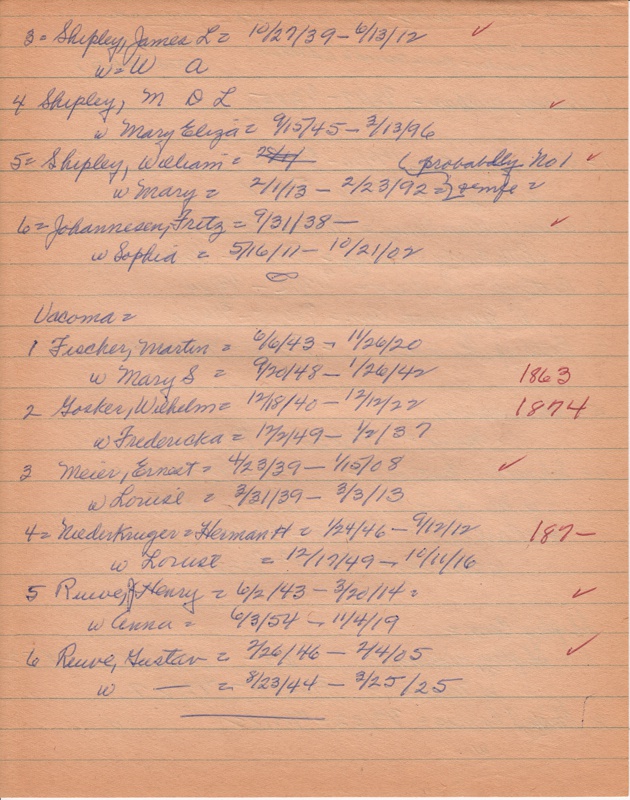 3 = Shipley, James L = 10/27/39 – 6/13/12 ✓
w = W A
4 Shipley, M D L ✓
w Mary Eliza = 9/15/45 – 3/13/96
5 = Shipley, William = (probably No 1 ✓
w Mary = 2/1/13 – 2/23/92 =
6 = Johannesen, Fritz = 9/31/38 – ✓
w Sophia = 5/16/11 – 10/21/02
Vacoma =
1 Fischer, Martin = 6/6/43 – 11/26/20
w Mary S = 9/20/48 – 1/26/42 1863
2 Gosker, Wilhelm = 12/18/40 – 12/12/22 1874
w Fredericka = 12/2/49 – 1/2/37
3 Meier, Ernest = 4/23/39 – 1/15/08 ✓
w Louise = 3/31/39 – 3/3/13
4 = Niederkruger = Herman H = 1/24/46 – 9/12/12 187–
w Louise = 12/17/49 – 10/11/16
5 Reuve, J Henry = 6/2/43 – 3/20/14 = ✓
w Anna = 6/3/54 – 11/4/19
6 Reuve, Gustav = 2/26/46 – 2/4/05 ✓
w — = 8/23/44 – 3/25/25